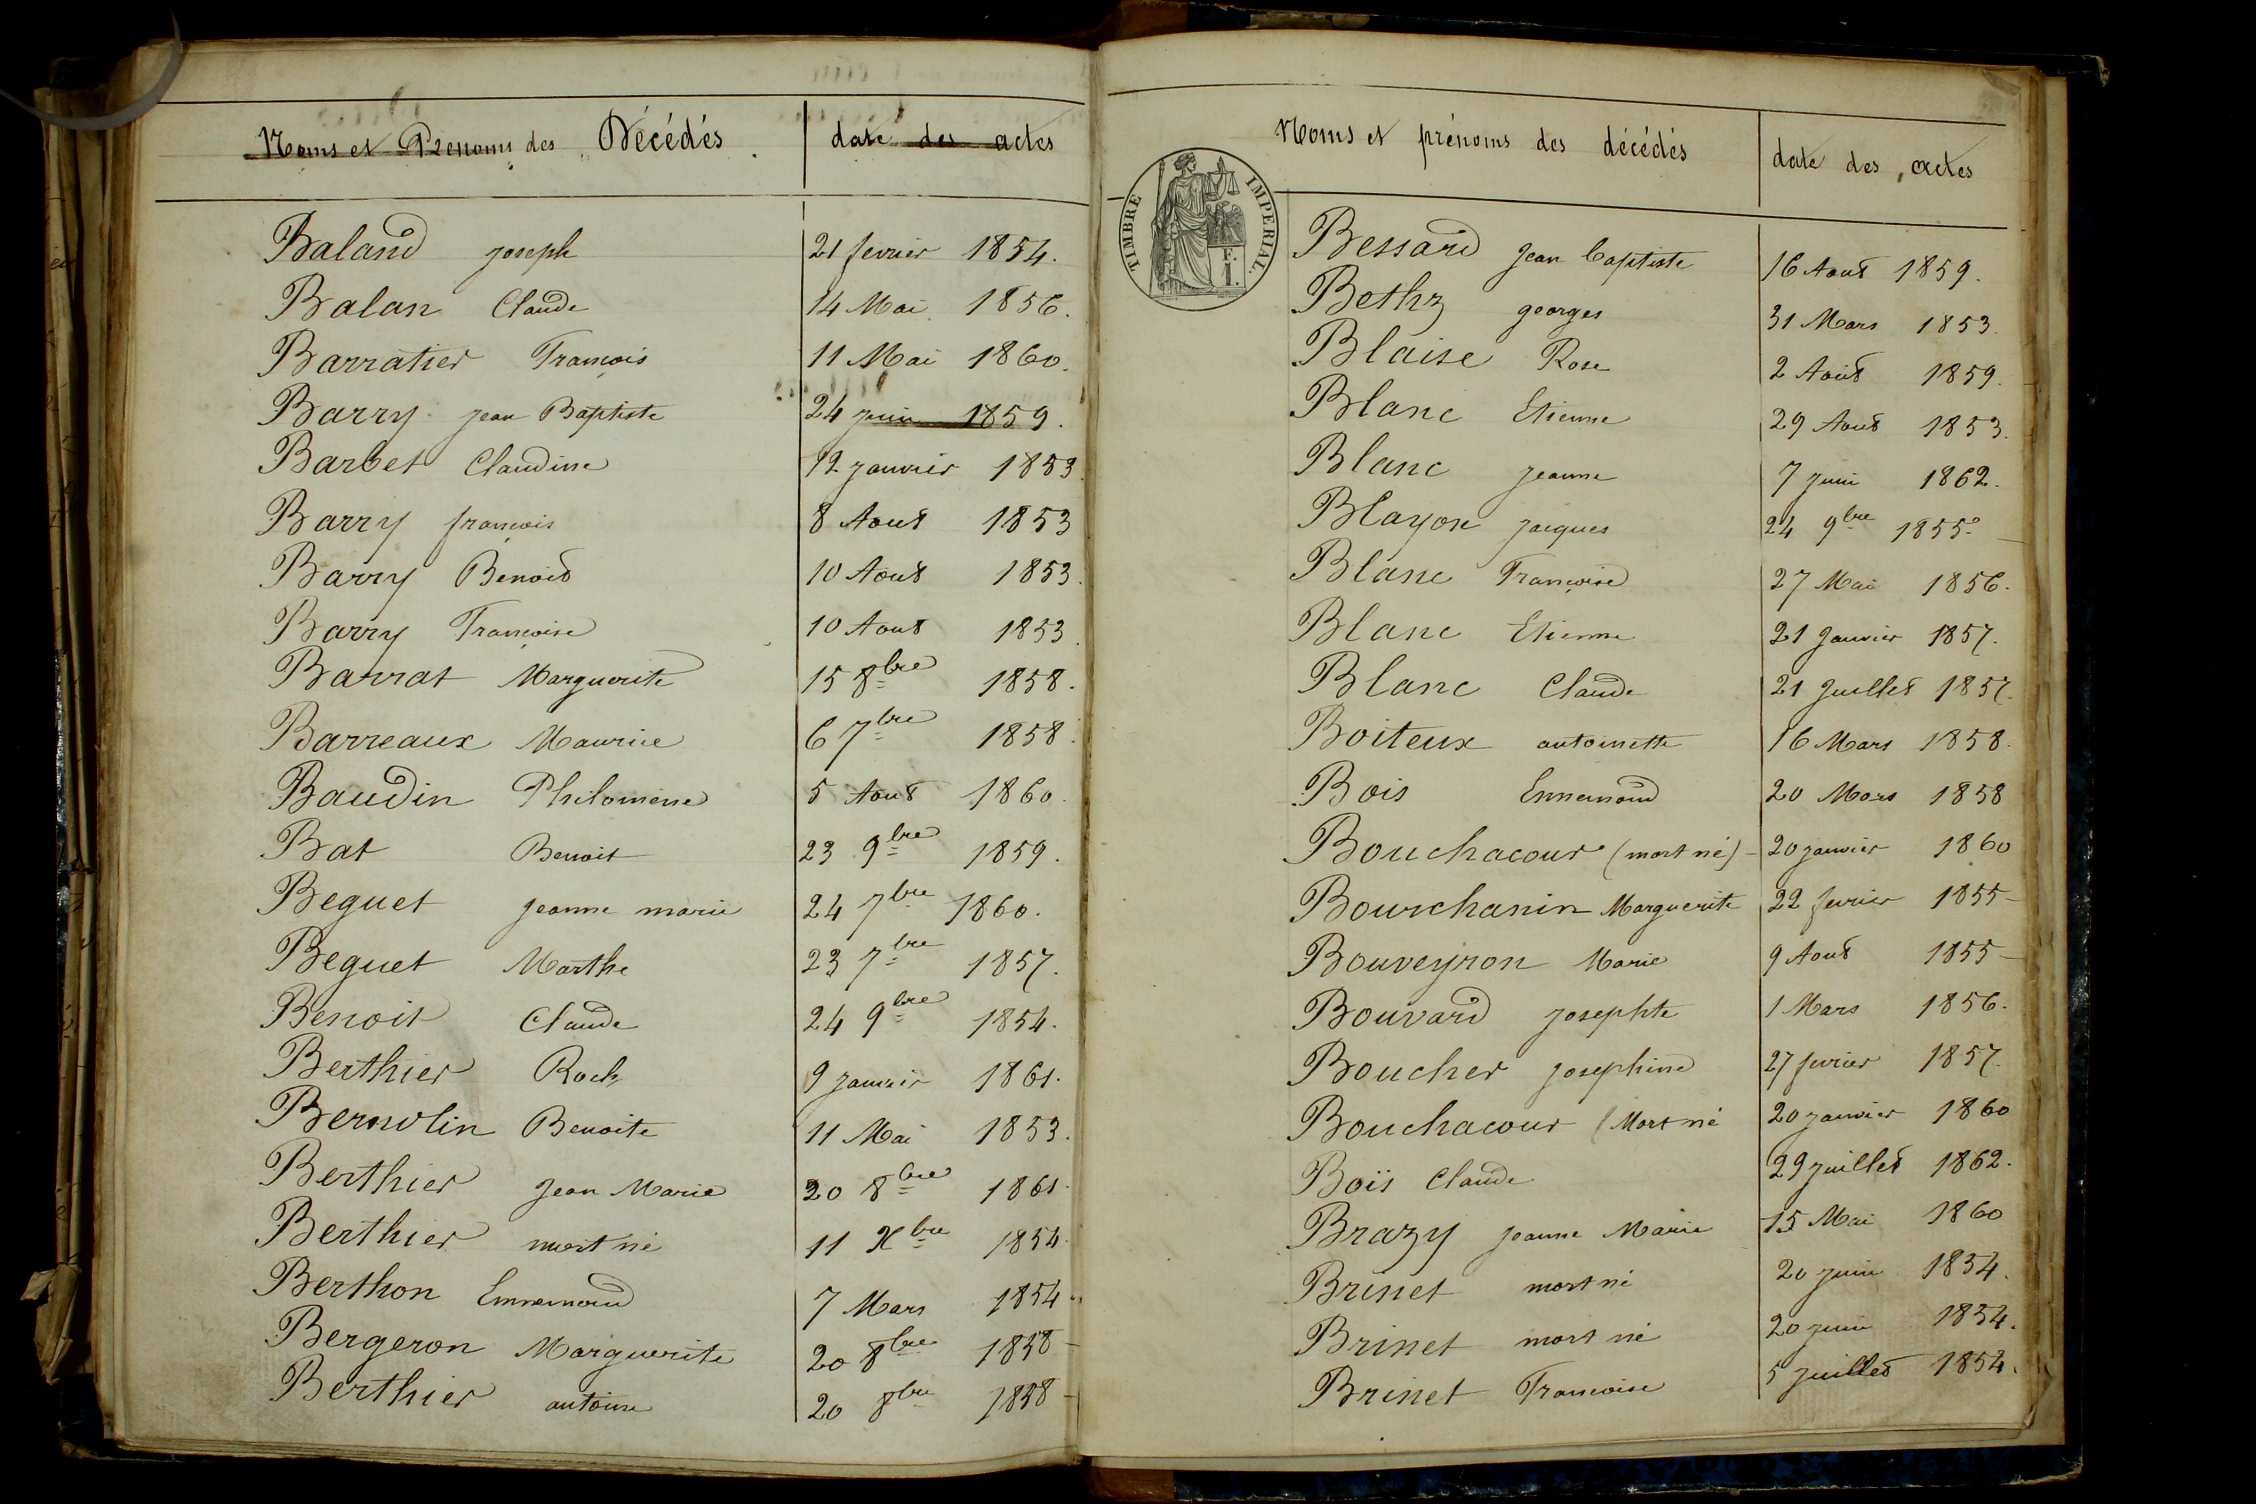 Noms et Prenoms des Décédés. date des actes
Baland joseph 21 fevrier 1854.
Balan Claude 14 Mai 1856.
Barratier François 11 Mai 1860.
Barry jean Baptiste 24 juin 1859.
Barbet Claudine 12 janvier 1853
Barry françois 8 Aout 1853
Barry Benoit 10 Aout 1853.
Barry Françoise 10 Aout 1853.
Barrat Marguerite 15 8bre 1858.
Barreaux Maurice 6 7bre 1858.
Baudin Philomene 5 Aout 1860.
Bat Benoit 23 9bre 1859.
Beguet jeanne marie 24 7bre 1860.
Beguet Marthe 23 7bre 1857.
Benoit Claude 24 9bre 1854.
Berthier Roch 9 janvier 1861.
Bernolin Benoite 11 Mai 1853.
Berthier jean Marie 20 8bre 1861.
Berthier mort né 11 Xbre 1854.
Berthon Ennemond 7 Mars 1854.
Bergeron Marguerite 20 8bre 1858
Berthier antoine 20 8bre 1858
Noms et prénoms des décédés date des actes
TIMBRE IMPERIAL.
F.
1.
Bessard jean baptiste 16 Aout 1859.
Bethz georges 31 Mars 1853.
Blaise Rose 2 Août 1859.
Blanc Etienne 29 Aout 1853.
Blanc jeanne 7 juin 1862.
Blayon jacques 24 9bre 1855.
Blanc Françoise 27 Mai 1856.
Blanc Etienne 21 Janvier 1857.
Blanc Claude 21 Juillet 1857.
Boiteux antoinette 16 Mars 1858.
Bois Ennemond 20 Mars 1858
Bouchacour (mort né) 20 janvier 1860
Bourchanin Marguerite 22 fevrier 1855
Bouveyron Marie 9 Aout 1855
Bouvard josephte 1 Mars 1856.
Boucher josephine 27 fevrier 1857.
Bouchacour (Mort né 20 janvier 1860
Boïs Claude 29 juillet 1862.
Brazy jeanne Marie 15 Mai 1860
Brinet mort né 20 juin 1854.
Brinet mort né 20 juin 1854.
Brinet Françoise 5 juillet 1854.